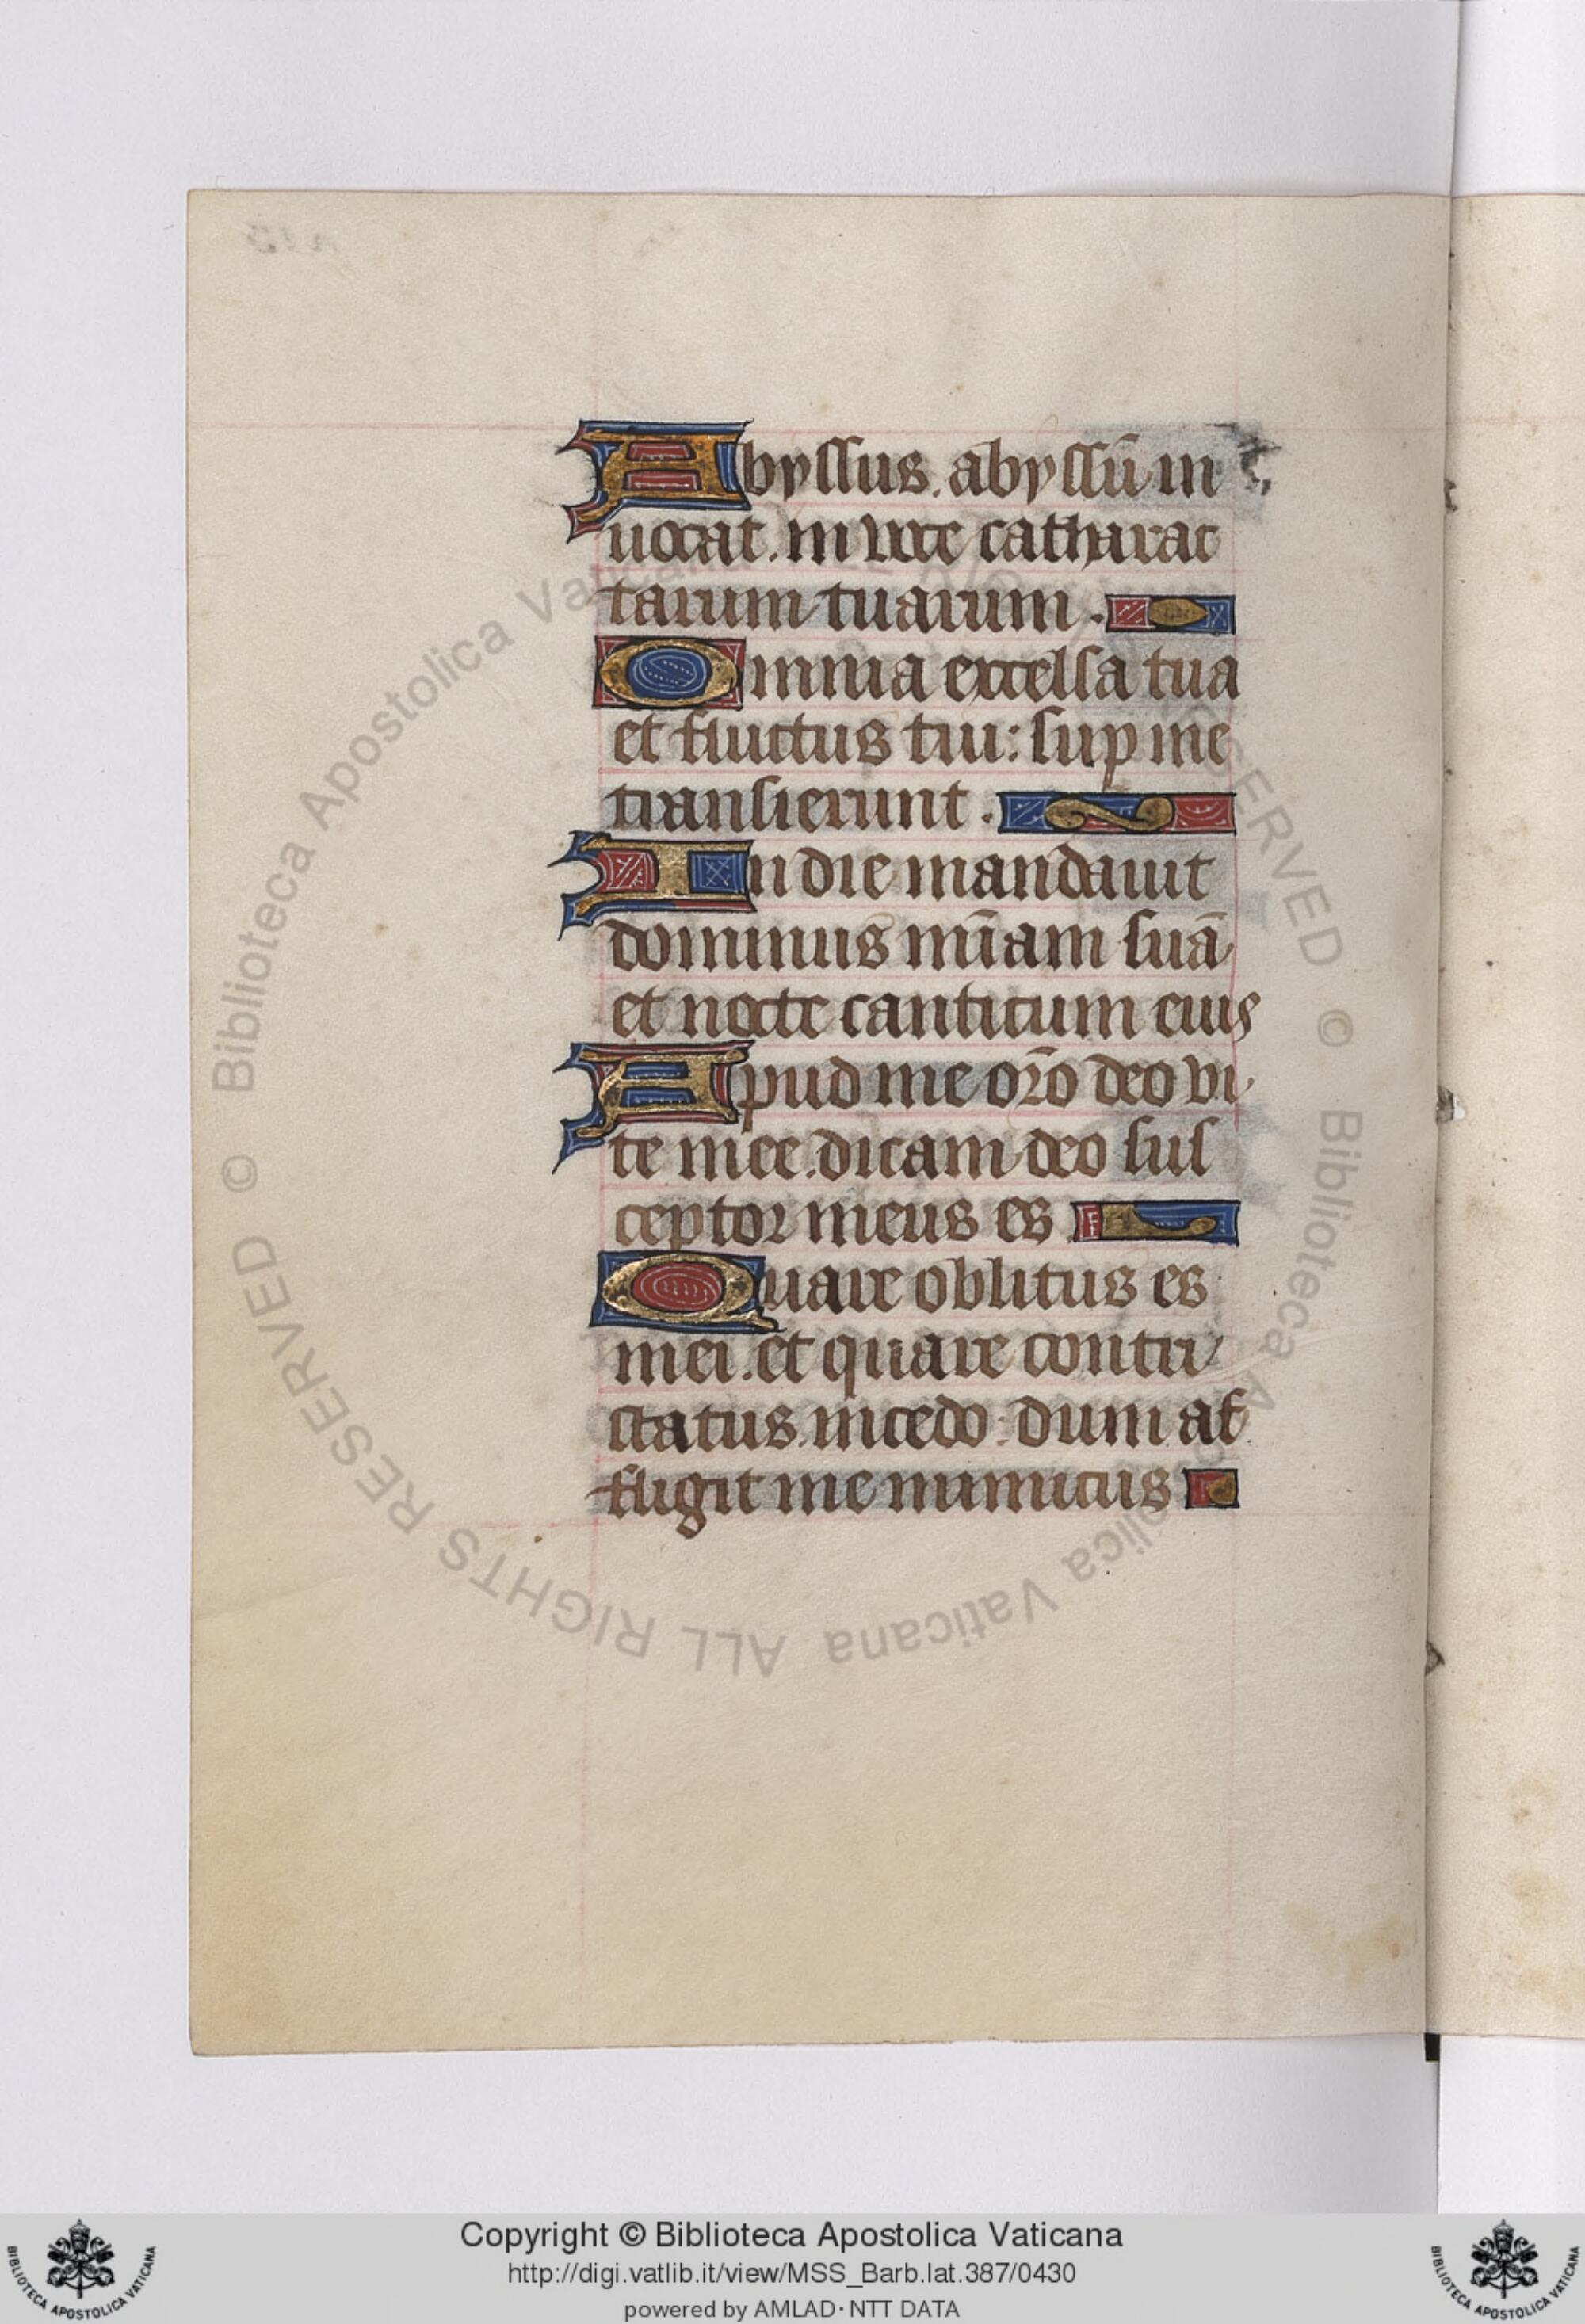 Abyssus. abyssū in
uocat. in uoce catharac
tarum tuarum.
Omnia excelsa tua
et fluctus tui: sup me
transierunt.
In die mandauit
dominus mīam suā
et nocte canticum eius
Apud me orō deo vi
te mee. dicam deo sus
ceptor meus es
Quare oblitus es
mei. et quare contri
status. incedo: dum af
fligit me inimicus
© Biblioteca Apostolica Vaticana ALL RIGHTS RESERVED
© Biblioteca Apostolica Vaticana ALL RIGHTS RESERVED
Copyright © Biblioteca Apostolica Vaticana
http://digi.vatlib.it/view/MSS_Barb.lat.387/0430
powered by AMLAD·NTT DATA
BIBLIOTECA APOSTOLICA VATICANA
BIBLIOTECA APOSTOLICA VATICANA